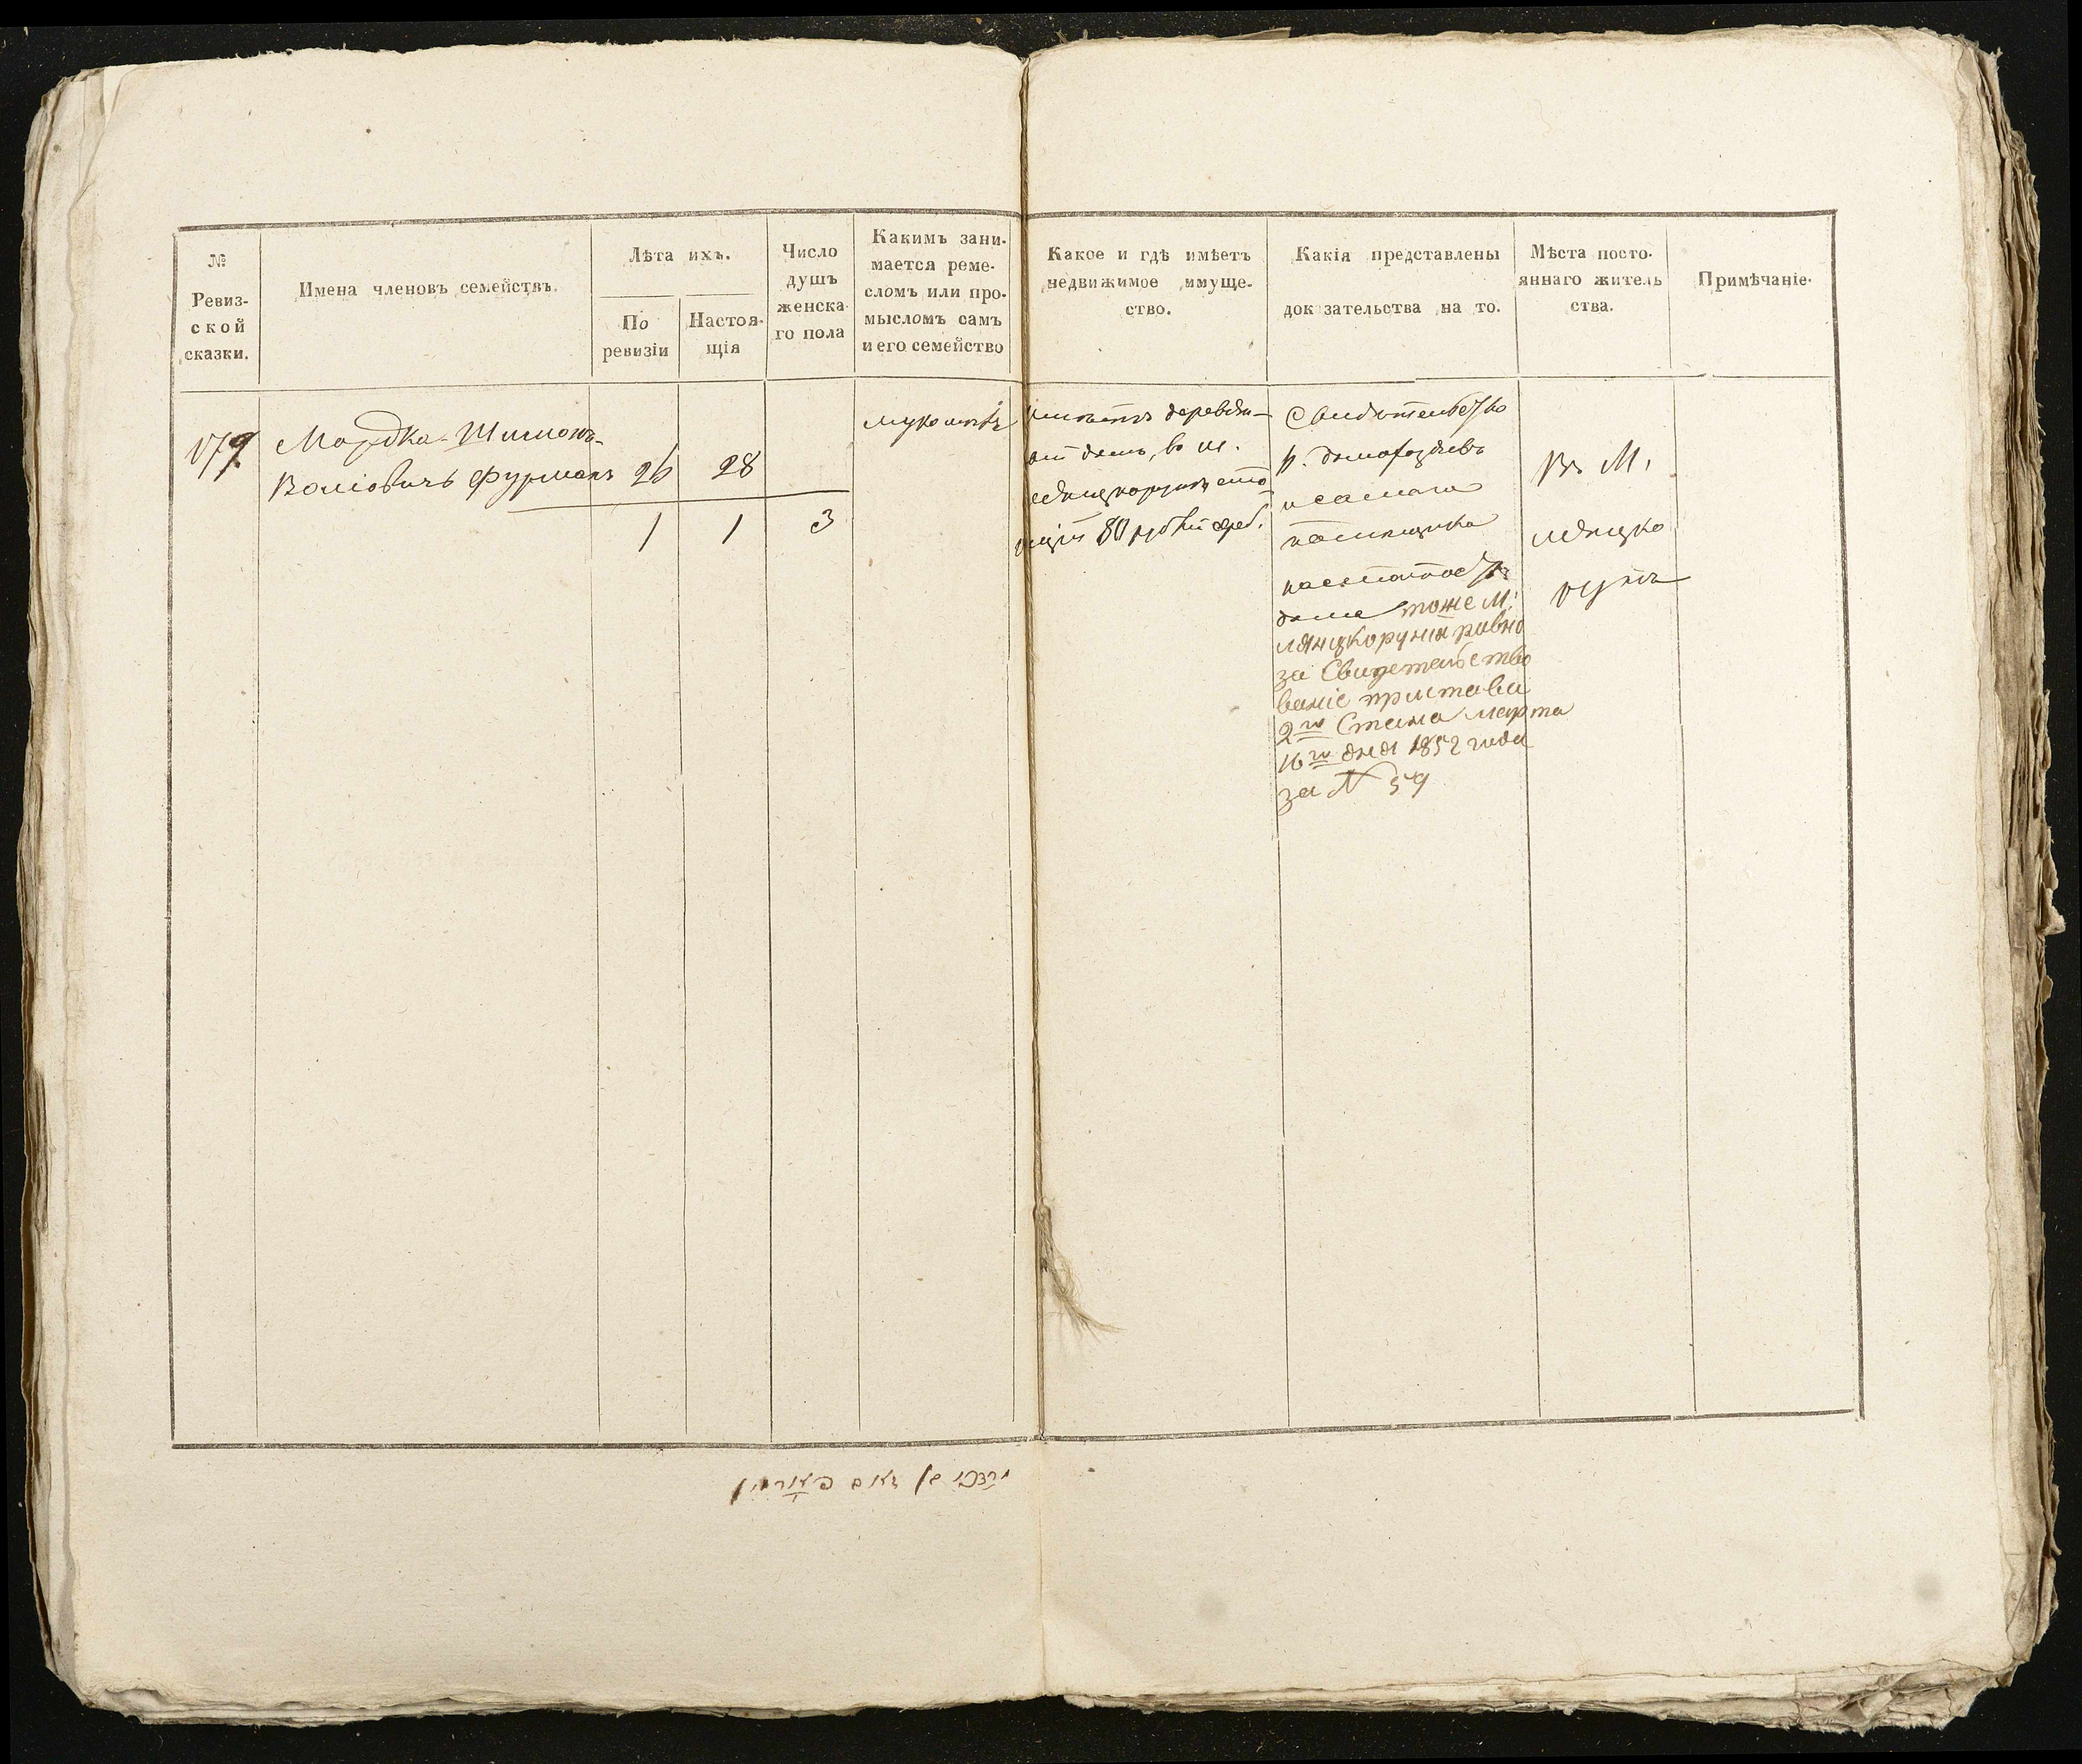 №
Ревиз-
ской
сказки.
Имена членовъ семействъ.
Лѣта ихъ.
По
ревизіи
Настоя-
щія
Число
душъ
женска-
го пола
Какимъ зани-
мается реме-
сломъ или про-
мысломъ самъ
и его семейство
Какое и гдѣ имѣетъ
недвижимое имуще-
ство.
Какія представлены
док зательства на то.
Мѣста посто-
яннаго житель
ства.
Примѣчаніе.
179
Мордка-Шимонъ-
Волiовичъ Фурманъ 26 28
1 1 3
имѣетъ деревян-
домъ, во м.
80 сереб.
Свидѣтельство
и самаго
помѣщика
доме тоже м.
лянцкоруня равно
за Свидетельство
ваніе пристава
2го Стана марта
16го дня 1852 года
за N 59
Въ М.
лянцко
рунѣ